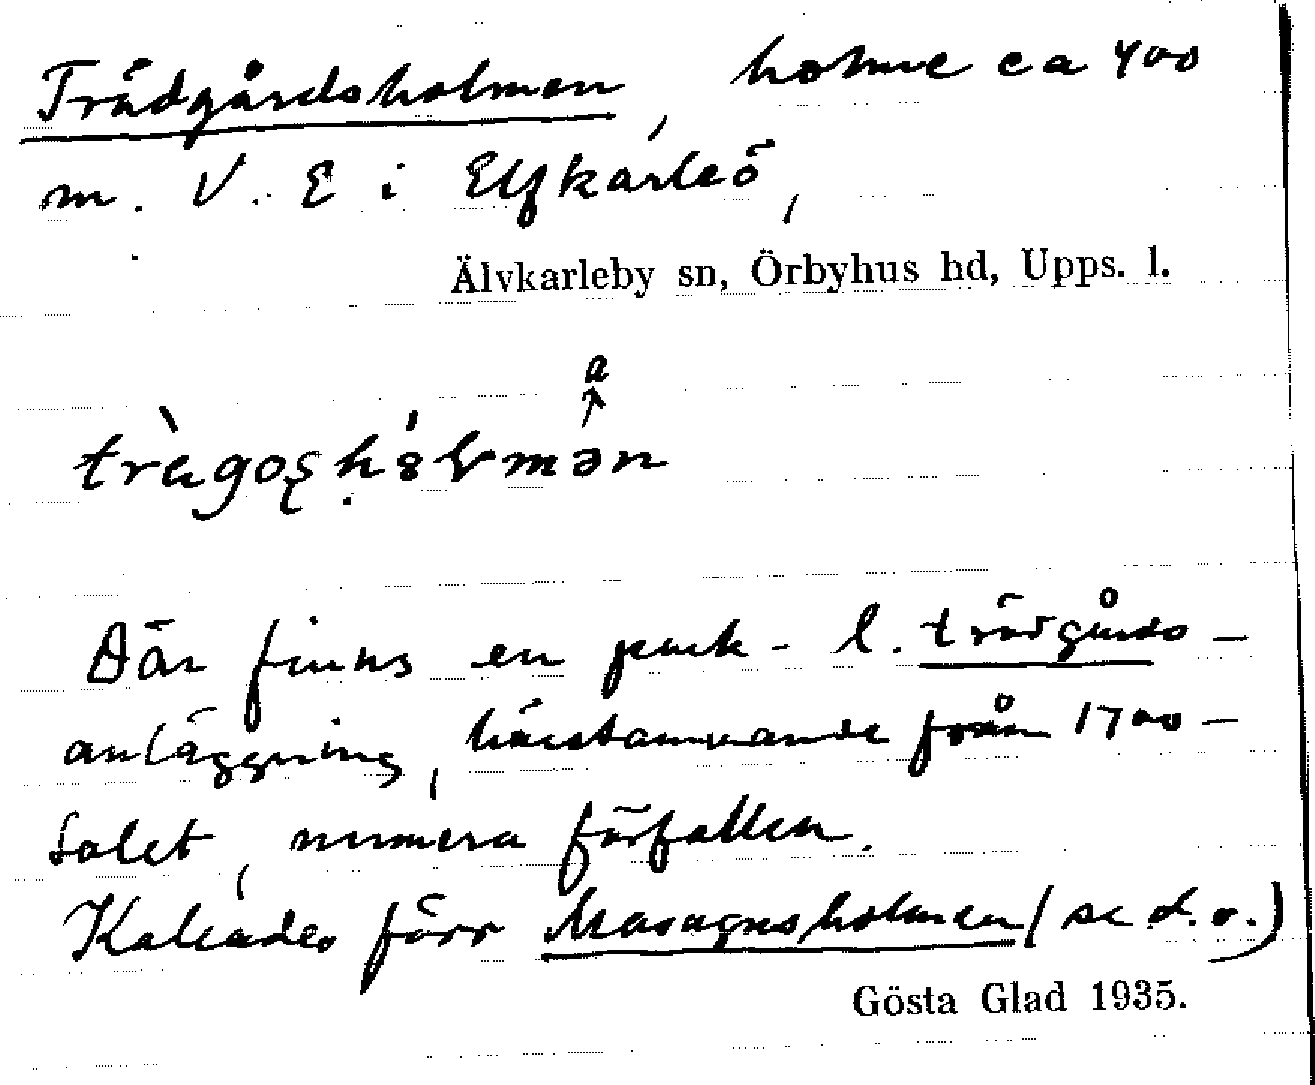 Trädgårdsholmen, holme ca 400
m. V. E i Elfkarleö,
Älvkarleby sn, Örbyhus hd, Upps. l.
a
Där finns en park- l. trädgårds-
anläggning, härstammande från 1700-
talet, numera förfallen.
Kallades förr holmen (se d. o.)
Gösta Glad 1935.